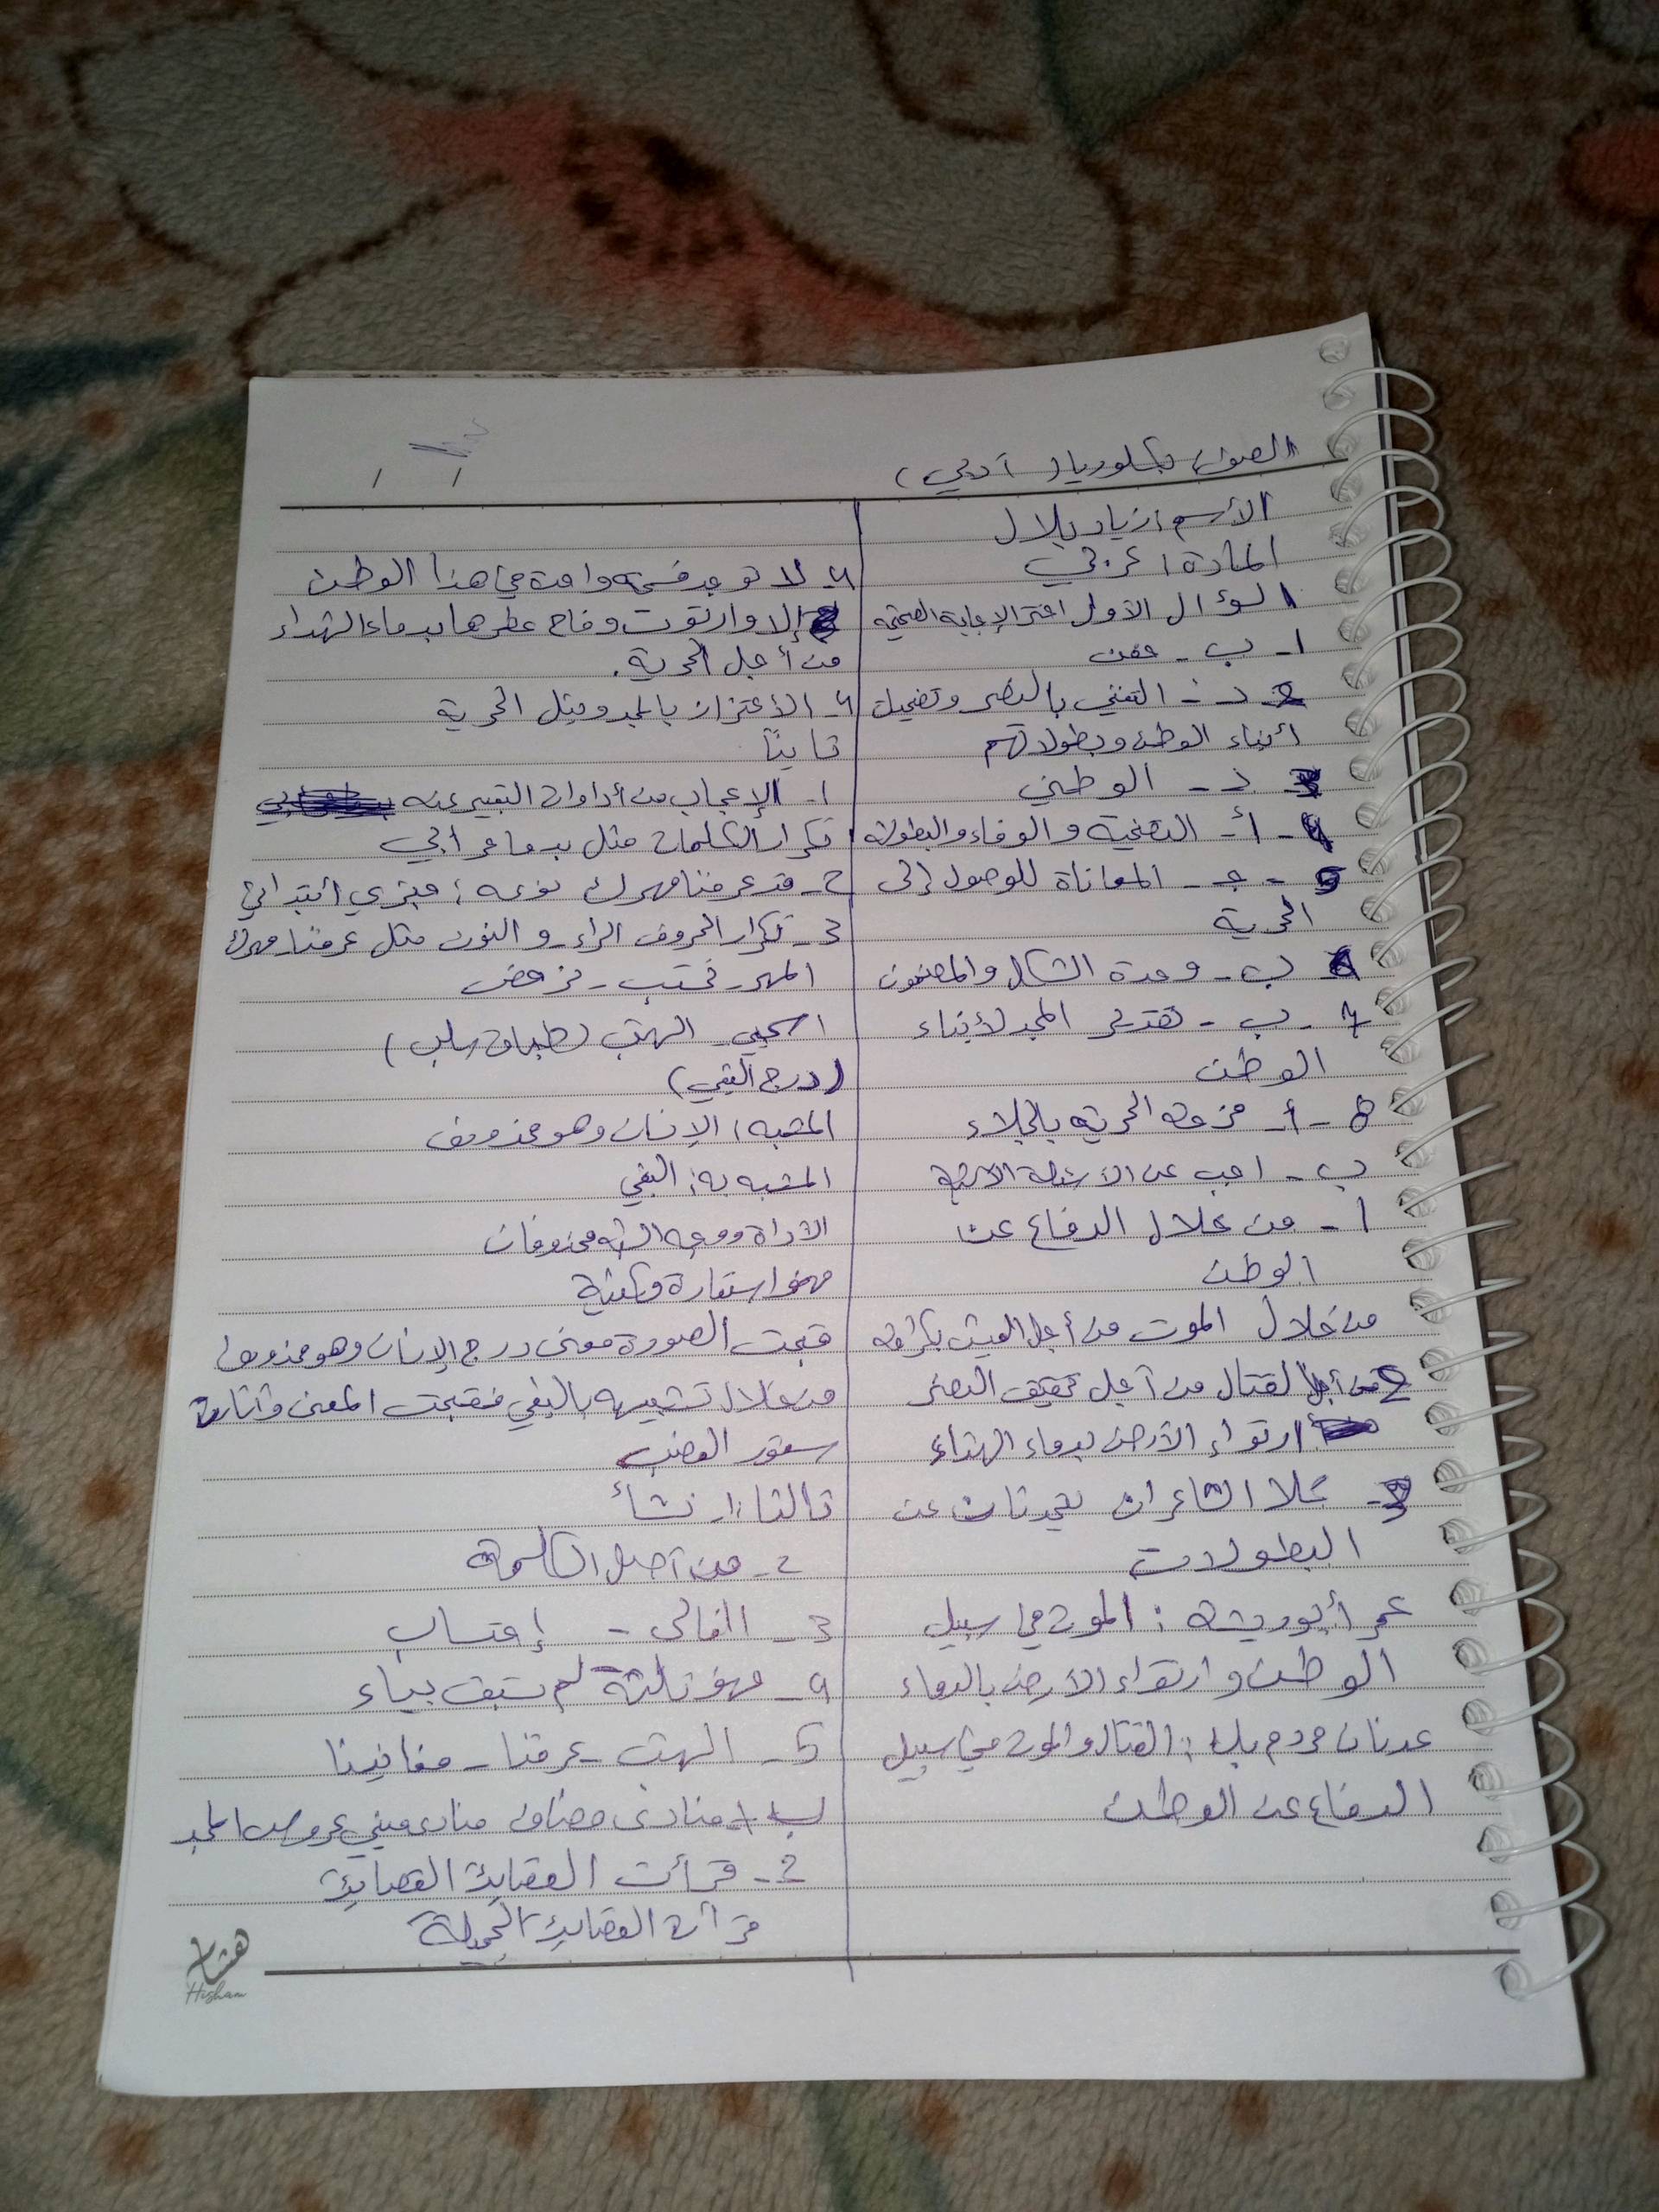 الصف: بكلوريا (أدبي)
/ /
الأسم: زياد بلال
المادة: عربي
السؤال الأول اختر الإجابة الصحيحة
1- ب -
2- د - التغني بالنصر وتضحيات
أبناء الوطن وبطولاتهم
3 د - الوطني
4 - أ - التضحية والوفاء والبطولة
5 - جـ - المعاناة للوصول إلى
الحرية
6 ب - وحدة الشكل والمضمون
7 - ب - تقديم المجد لأبناء
الوطن
8 - أ - فرحة الحرية بالجلاء
ب - اجب عن الأسئلة الآتية
1 - من خلال الدفاع عن
الوطن
من خلال الموت من أجل العيش بكرامة
2 من أجل القتال من أجل تحقيق النصر
ارتواء الأرض بدماء الشهداء
3- كلا الشاعران يتحدثان عن
البطولات
عمر أبو ريشة: الموت في سبيل
الوطن وارتواء الأرض بالدماء
عدنان مردم بك: القتال والموت في سبيل
الدفاع عن الوطن
4- لا توجد واحدة في هذا الوطن
إلا وارتوت وفاح عطرها بدماء الشهداء
من أجل الحرية.
4- الأعتزاز بالمجد ونيل الحرية
ثانياً
1- الإعجاب من أداوات التعبير عنه
تكرار الكلمات مثل
2- قد عرفنا مهرك نوعه: خبري أبتدائي
3- تكرار الحروف الراء و النون مثل عرفنا - مهرك
المهر -
(طباق سلب)
(درج البغي)
المشبه: الإنسان وهو محذوف
المشبه به: البغي
الأداة ووجه الشبه محذوفان
فهو استعارة مكنية
قبحت الصورة معنى درج الإنسان وهو محذوف
من خلال تشبيهه بالبغي فقبحت المعنى وأثارت
شعور الغضب
ثالثا: 1- نشأ
2- من أصل الكلمة
3- الغالي -
4- لم تسبق بياء
5- - عرفنا - مغانينا
ب 1- منادى مضاف منادى مبني عروس المجد
2- قرأت القصائد القصائد
قرأت القصائد الجميلة
هشام
Hisham